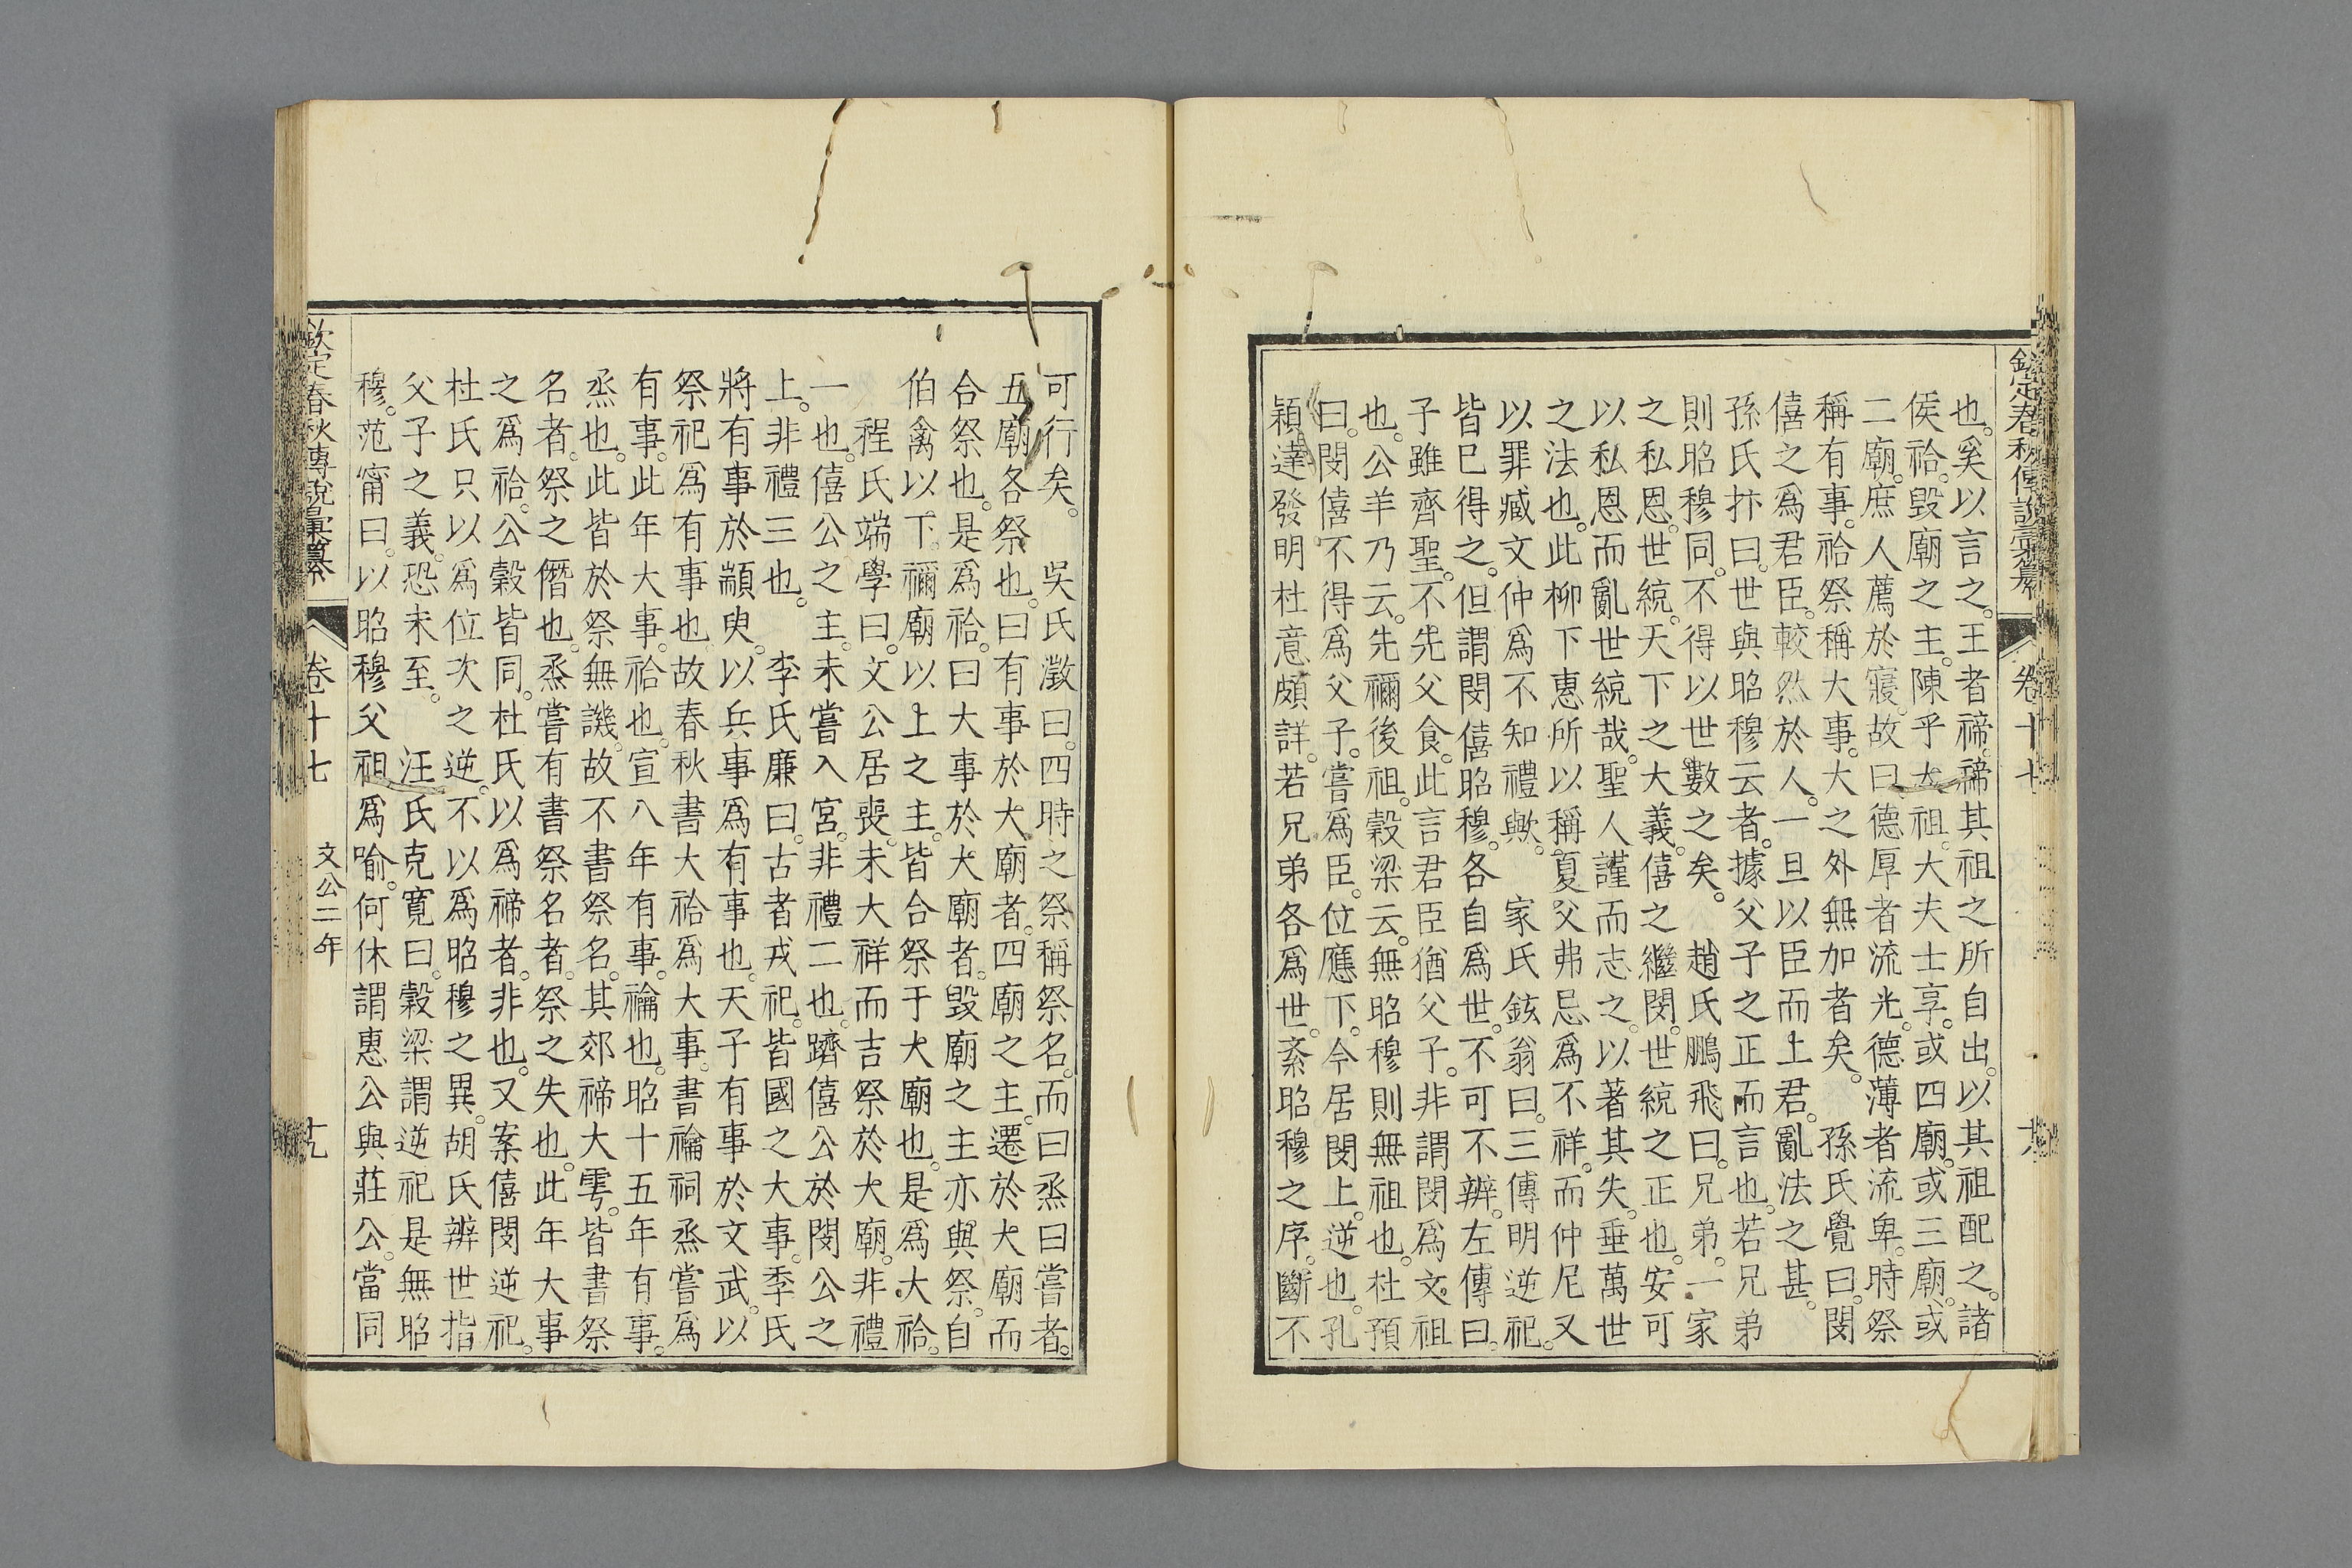 欽定春秋傳說彙纂 卷十七
也。奚以言之。王者禘。禘其祖之所自出。以其祖配之。諸
侯祫。毀廟之主。陳乎太祖。大夫士享。或四廟。或三廟。或
二廟。庶人薦於寢。故曰德厚者流光。德薄者流卑。時祭
稱有事。祫祭稱大事。大之外無加者矣。 孫氏覺曰。閔
僖之爲君臣。較然於人。一旦以臣而上君。亂法之甚。
孫氏抃曰。世與昭穆云者。據父子之正而言也。若兄弟
則昭穆同。不得以世數之矣。 趙氏鵬飛曰。兄弟。一家
之私恩。世統。天下之大義。僖之繼閔。世統之正也。安可
以私恩而亂世統哉。聖人謹而志之。以著其失。垂萬世
之法也。此柳下惠所以稱夏父弗忌爲不祥。而仲尼又
以罪臧文仲爲不知禮歟。 家氏鉉翁曰。三傳明逆祀。
皆已得之。但謂閔僖昭穆。各自爲世。不可不辨。左傳曰。
子雖齊聖。不先父食。此言君臣猶父子。非謂閔爲文祖
也。公羊乃云。先禰後祖。穀梁云。無昭穆則無祖也。杜預
曰。閔僖不得爲父子。嘗爲臣。位應下。今居閔上。逆也。孔
穎達發明杜意頗詳。若兄弟各爲世。紊昭穆之序。斷不
可行矣。 吳氏澂曰。四時之祭稱祭名。而曰烝曰嘗者。
五廟各祭也。曰有事於大廟者。四廟之主。遷於大廟而
合祭也。是爲祫。曰大事於大廟者。毀廟之主亦與祭。自
伯禽以下。禰廟以上之主。皆合祭于大廟也。是爲大祫。
程氏端學曰。文公居喪。未大祥而吉祭於大廟。非禮
一也。僖公之主。未嘗入宮。非禮二也。躋僖公於閔公之
上。非禮三也。 李氏廉曰。古者戎祀。皆國之大事。季氏
將有事於顓臾。以兵事爲有事也。天子有事於文武。以
祭祀爲有事也。故春秋書大祫爲大事。書禴祠烝嘗爲
有事。此年大事。祫也。宣八年有事。禴也。昭十五年有事。
烝也。此皆於祭無譏。故不書祭名。其郊禘大雩。皆書祭
名者。祭之僭也。烝嘗有書祭名者。祭之失也。此年大事
之爲祫。公穀皆同。杜氏以爲禘者。非也。又案僖閔逆祀。
杜氏只以爲位次之逆。不以爲昭穆之異。胡氏辨世指
父子之義。恐未至。 汪氏克寬曰。穀梁謂逆祀是無昭
穆。范甯曰。以昭穆父祖爲喻。何休謂惠公與莊公。當同
欽定春秋傳說彙纂 卷十七 文公二年 十九